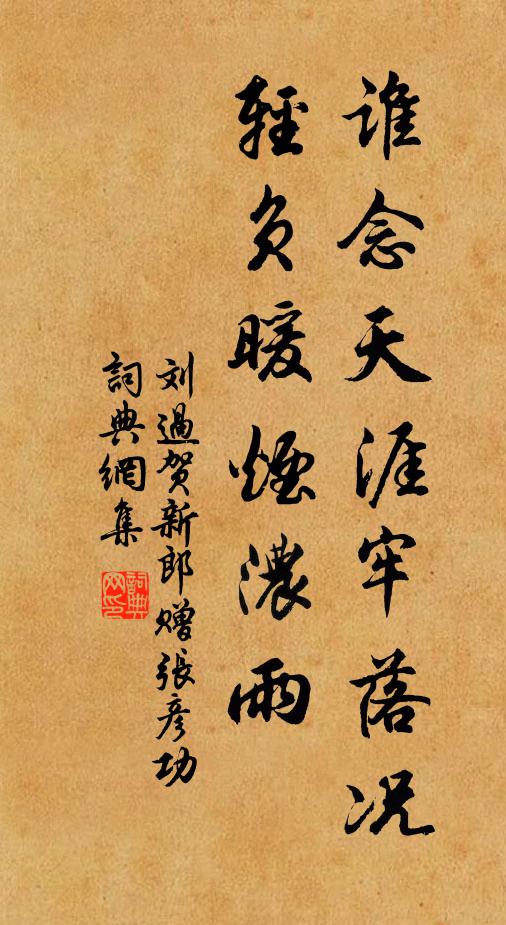 谁念天涯牢落况
輕负暖煙濃雨
刘過贺新郎赠張彦功
詞典網集
詞典网印